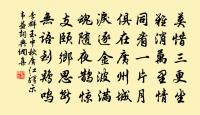 莫惜三更坐
難消萬里情
同看一片月
俱在廣州城
淚逐金波滿
魂隨夜鵲驚
支頤鄉思斷
無語到鷄鳴
李群玉中秋廣江驛示
韋益詞典網喜